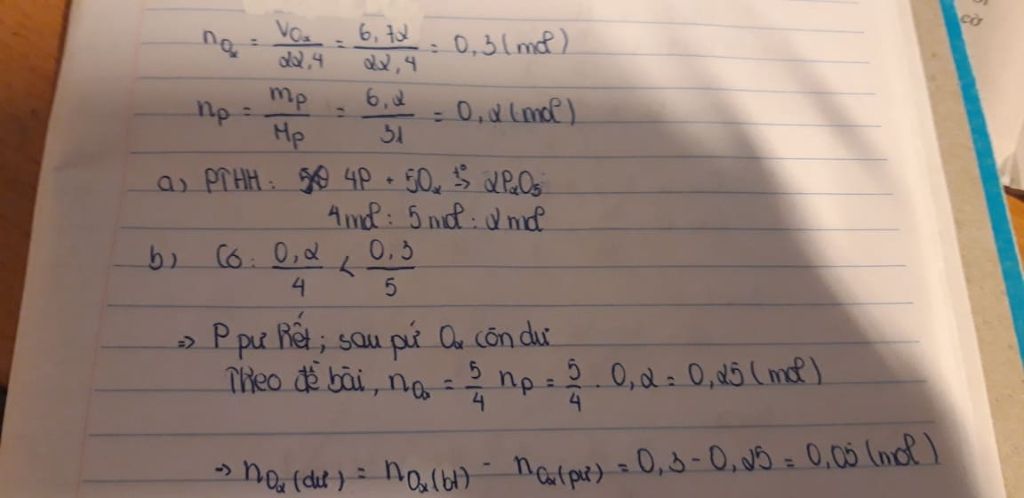 n_{O₂} = V_{O₂}/22,4 = 6,72/22,4 = 0,3 (mol)
n_P = m_P/M_P = 6,2/31 = 0,2 (mol)
a) PTHH: 4P + 5O₂ →(t°) 2P₂O₅
4 mol : 5 mol : 2 mol
b) Có: 0,2/4 < 0,3/5
=> P pư hết; sau pứ O₂ còn dư
Theo đề bài, n_{O₂} = 5/4 n_P = 5/4 . 0,2 = 0,25 (mol)
→ n_{O₂ (dư)} = n_{O₂ (bđ)} - n_{O₂ (pư)} = 0,3 - 0,25 = 0,05 (mol)
cờ